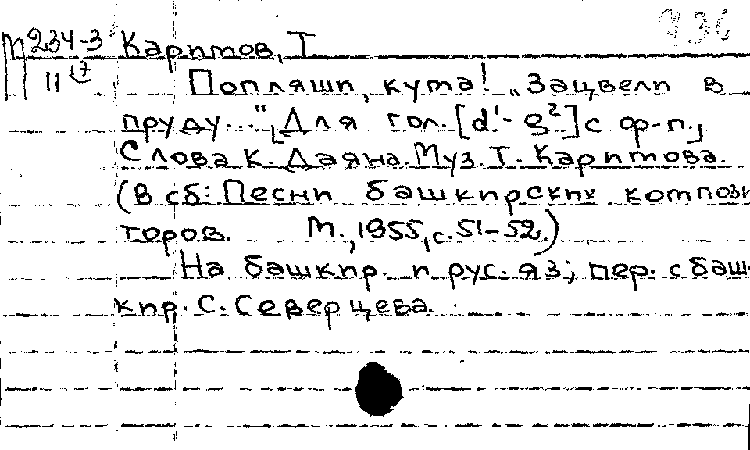 П 234-3 Каримов, Т.
11
Попляши, кума! „Зацвели в
пруду..." [Для гол. [d¹-g²] с ф-п.]
Слова К. Даяна. Муз. Т. Каримова.
(В сб: Песни башкирских компози
торов. М., 1955, с. 51-52.)
На башкир. и рус. яз; пер. с баш-
кир. С. Северцева.